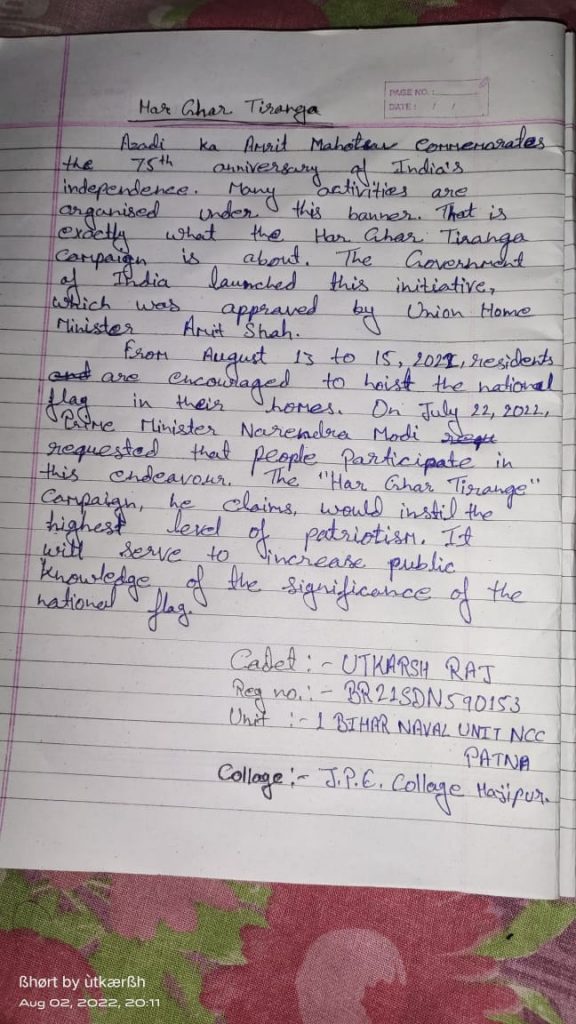 PAGE NO.:
DATE: / /
Har Ghar Tiranga
Azadi ka Amrit Mahotsav commemorates
the 75th anniversary of India's
independence. Many activities are
organised under this banner. That is
exactly what the Har Ghar Tiranga
campaign is about. The Government
of India launched this initiative,
which was appraved by Union Home
Minister Amit Shah.
From August 13 to 15, 2022, residents
and are encouraged to hoist the national
flag in their homes. On July 22, 2022,
Prime Minister Narendra Modi requ
requested that people participate in
this endeavour. The "Har Ghar Tirange"
Campaign, he claims, would instil the
highest level of patriotism. It
will serve to increase public
knowledge of the significance of the
national flag.
Cadet :- UTKARSH RAJ
Reg no.:- BR21SDN590153
Unit :- 1 BIHAR NAVAL UNIT NCC
PATNA
Collage :- J.P.E. Collage Hajipur.
ßhørt by ùtkærßh
Aug 02, 2022, 20:11